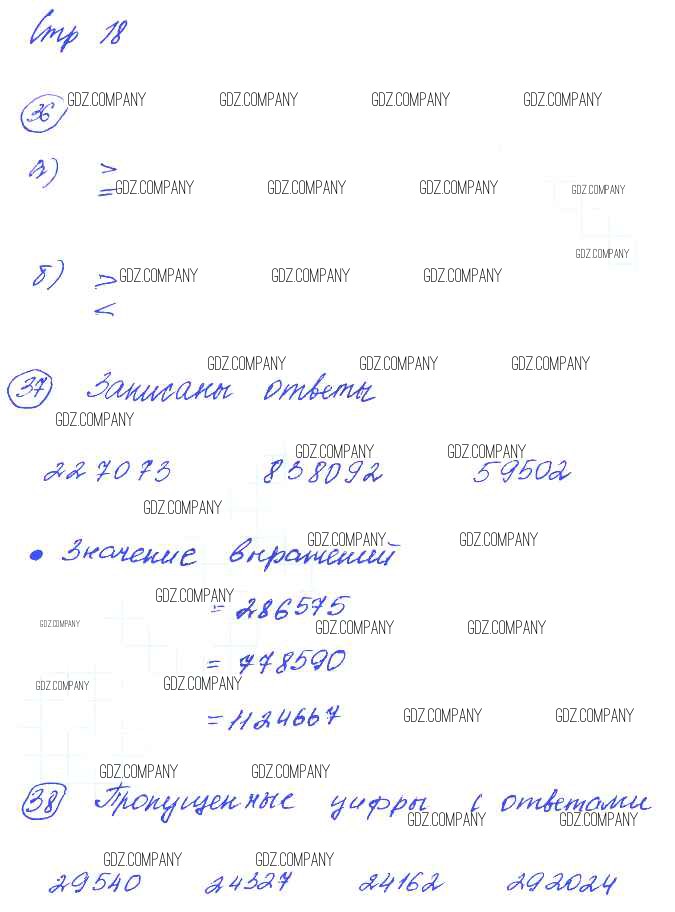 Стр 18
GDZ.COMPANY GDZ.COMPANY GDZ.COMPANY GDZ.COMPANY
36
а) >
= GDZ.COMPANY GDZ.COMPANY GDZ.COMPANY GDZ.COMPANY
GDZ.COMPANY
б) > GDZ.COMPANY GDZ.COMPANY GDZ.COMPANY
<
GDZ.COMPANY GDZ.COMPANY GDZ.COMPANY
37 Записаны ответы
GDZ.COMPANY
GDZ.COMPANY GDZ.COMPANY
227073 838092 59502
GDZ.COMPANY
GDZ.COMPANY GDZ.COMPANY
• Значение выражений
GDZ.COMPANY
= 286575
GDZ.COMPANY GDZ.COMPANY GDZ.COMPANY
= 778590
GDZ.COMPANY GDZ.COMPANY
= 1124667 GDZ.COMPANY GDZ.COMPANY
GDZ.COMPANY GDZ.COMPANY
38 Пропущенные цифры с ответами
GDZ.COMPANY GDZ.COMPANY
GDZ.COMPANY GDZ.COMPANY
29540 24327 24162 292024